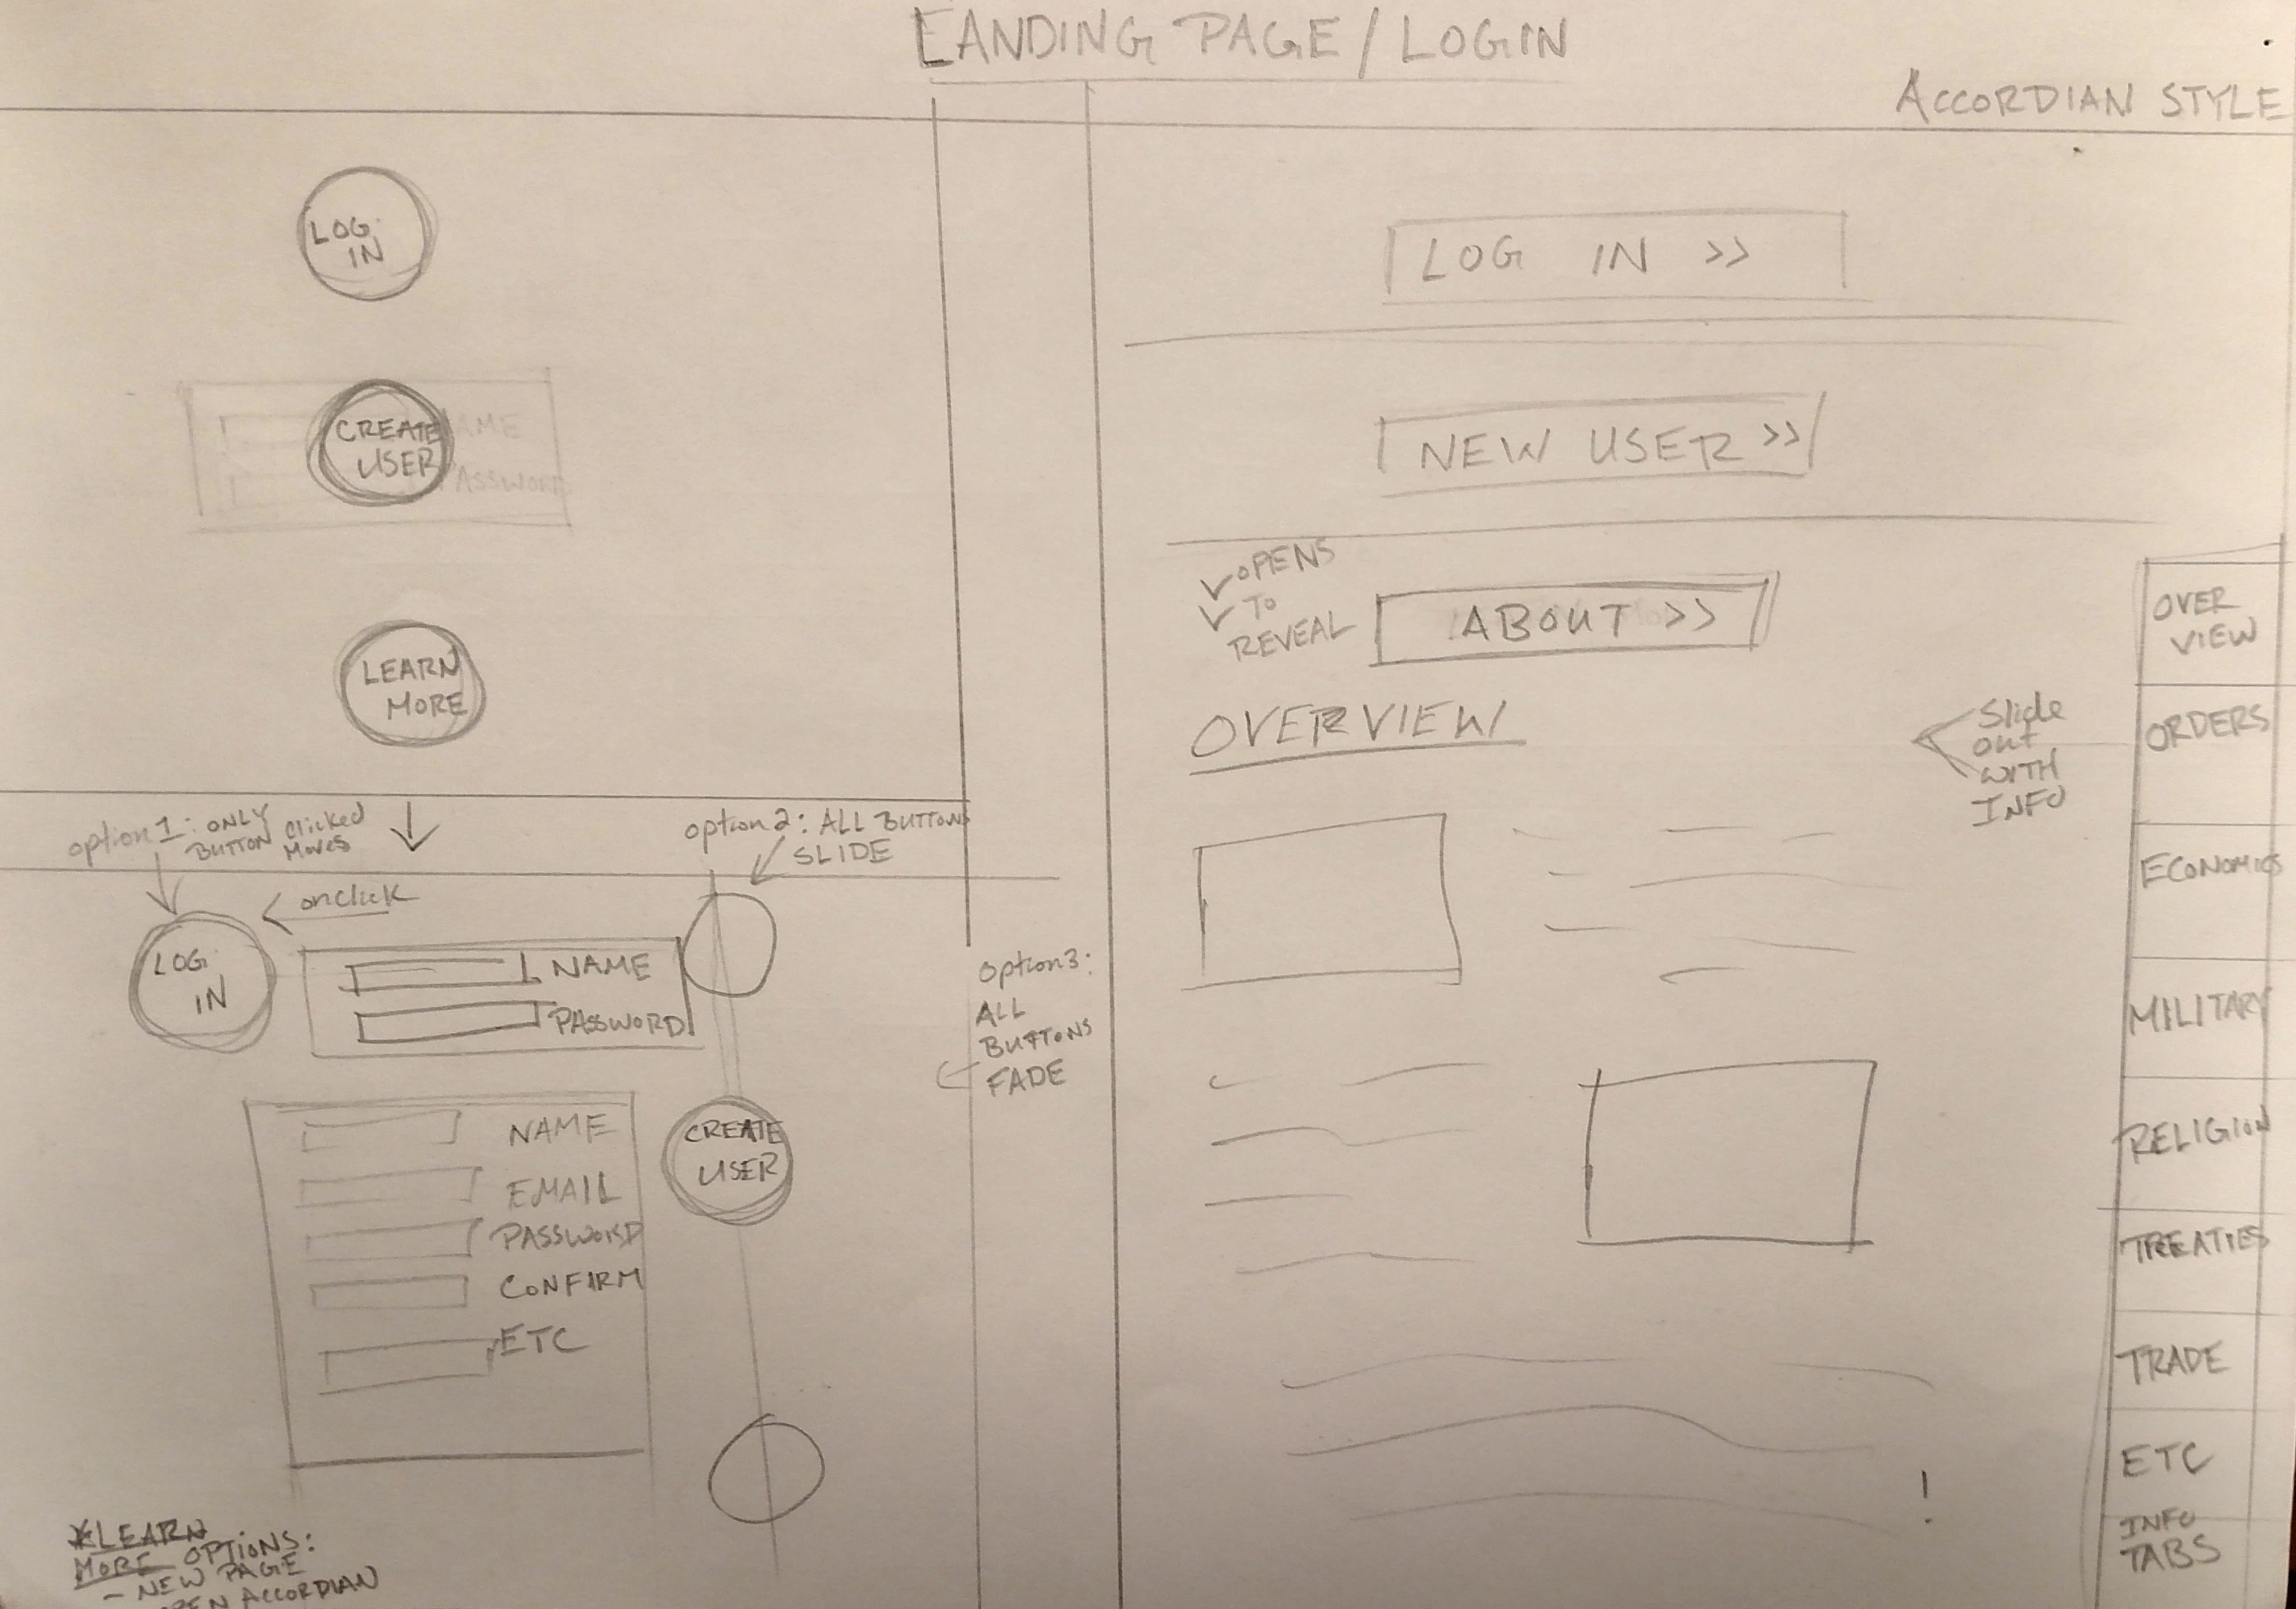 LANDING PAGE / LOGIN
ACCORDIAN STYLE
LOG
IN
CREATE
USER
NAME
PASSWORD
LEARN
MORE
option 1: ONLY
BUTTON clicked
moves
option 2: ALL BUTTONS
SLIDE
onclick
LOG
IN
NAME
PASSWORD
option 3:
ALL
BUTTONS
FADE
NAME
EMAIL
PASSWORD
CONFIRM
ETC
CREATE
USER
*LEARN
MORE OPTIONS:
- NEW PAGE
OPEN ACCORDIAN
LOG IN >>
NEW USER >>
OPENS
TO
REVEAL
ABOUT >>
OVERVIEW
Slide
out
WITH
INFO
OVER
VIEW
ORDERS
ECONOMICS
MILITARY
RELIGION
TREATIES
TRADE
ETC
INFO
TABS
!